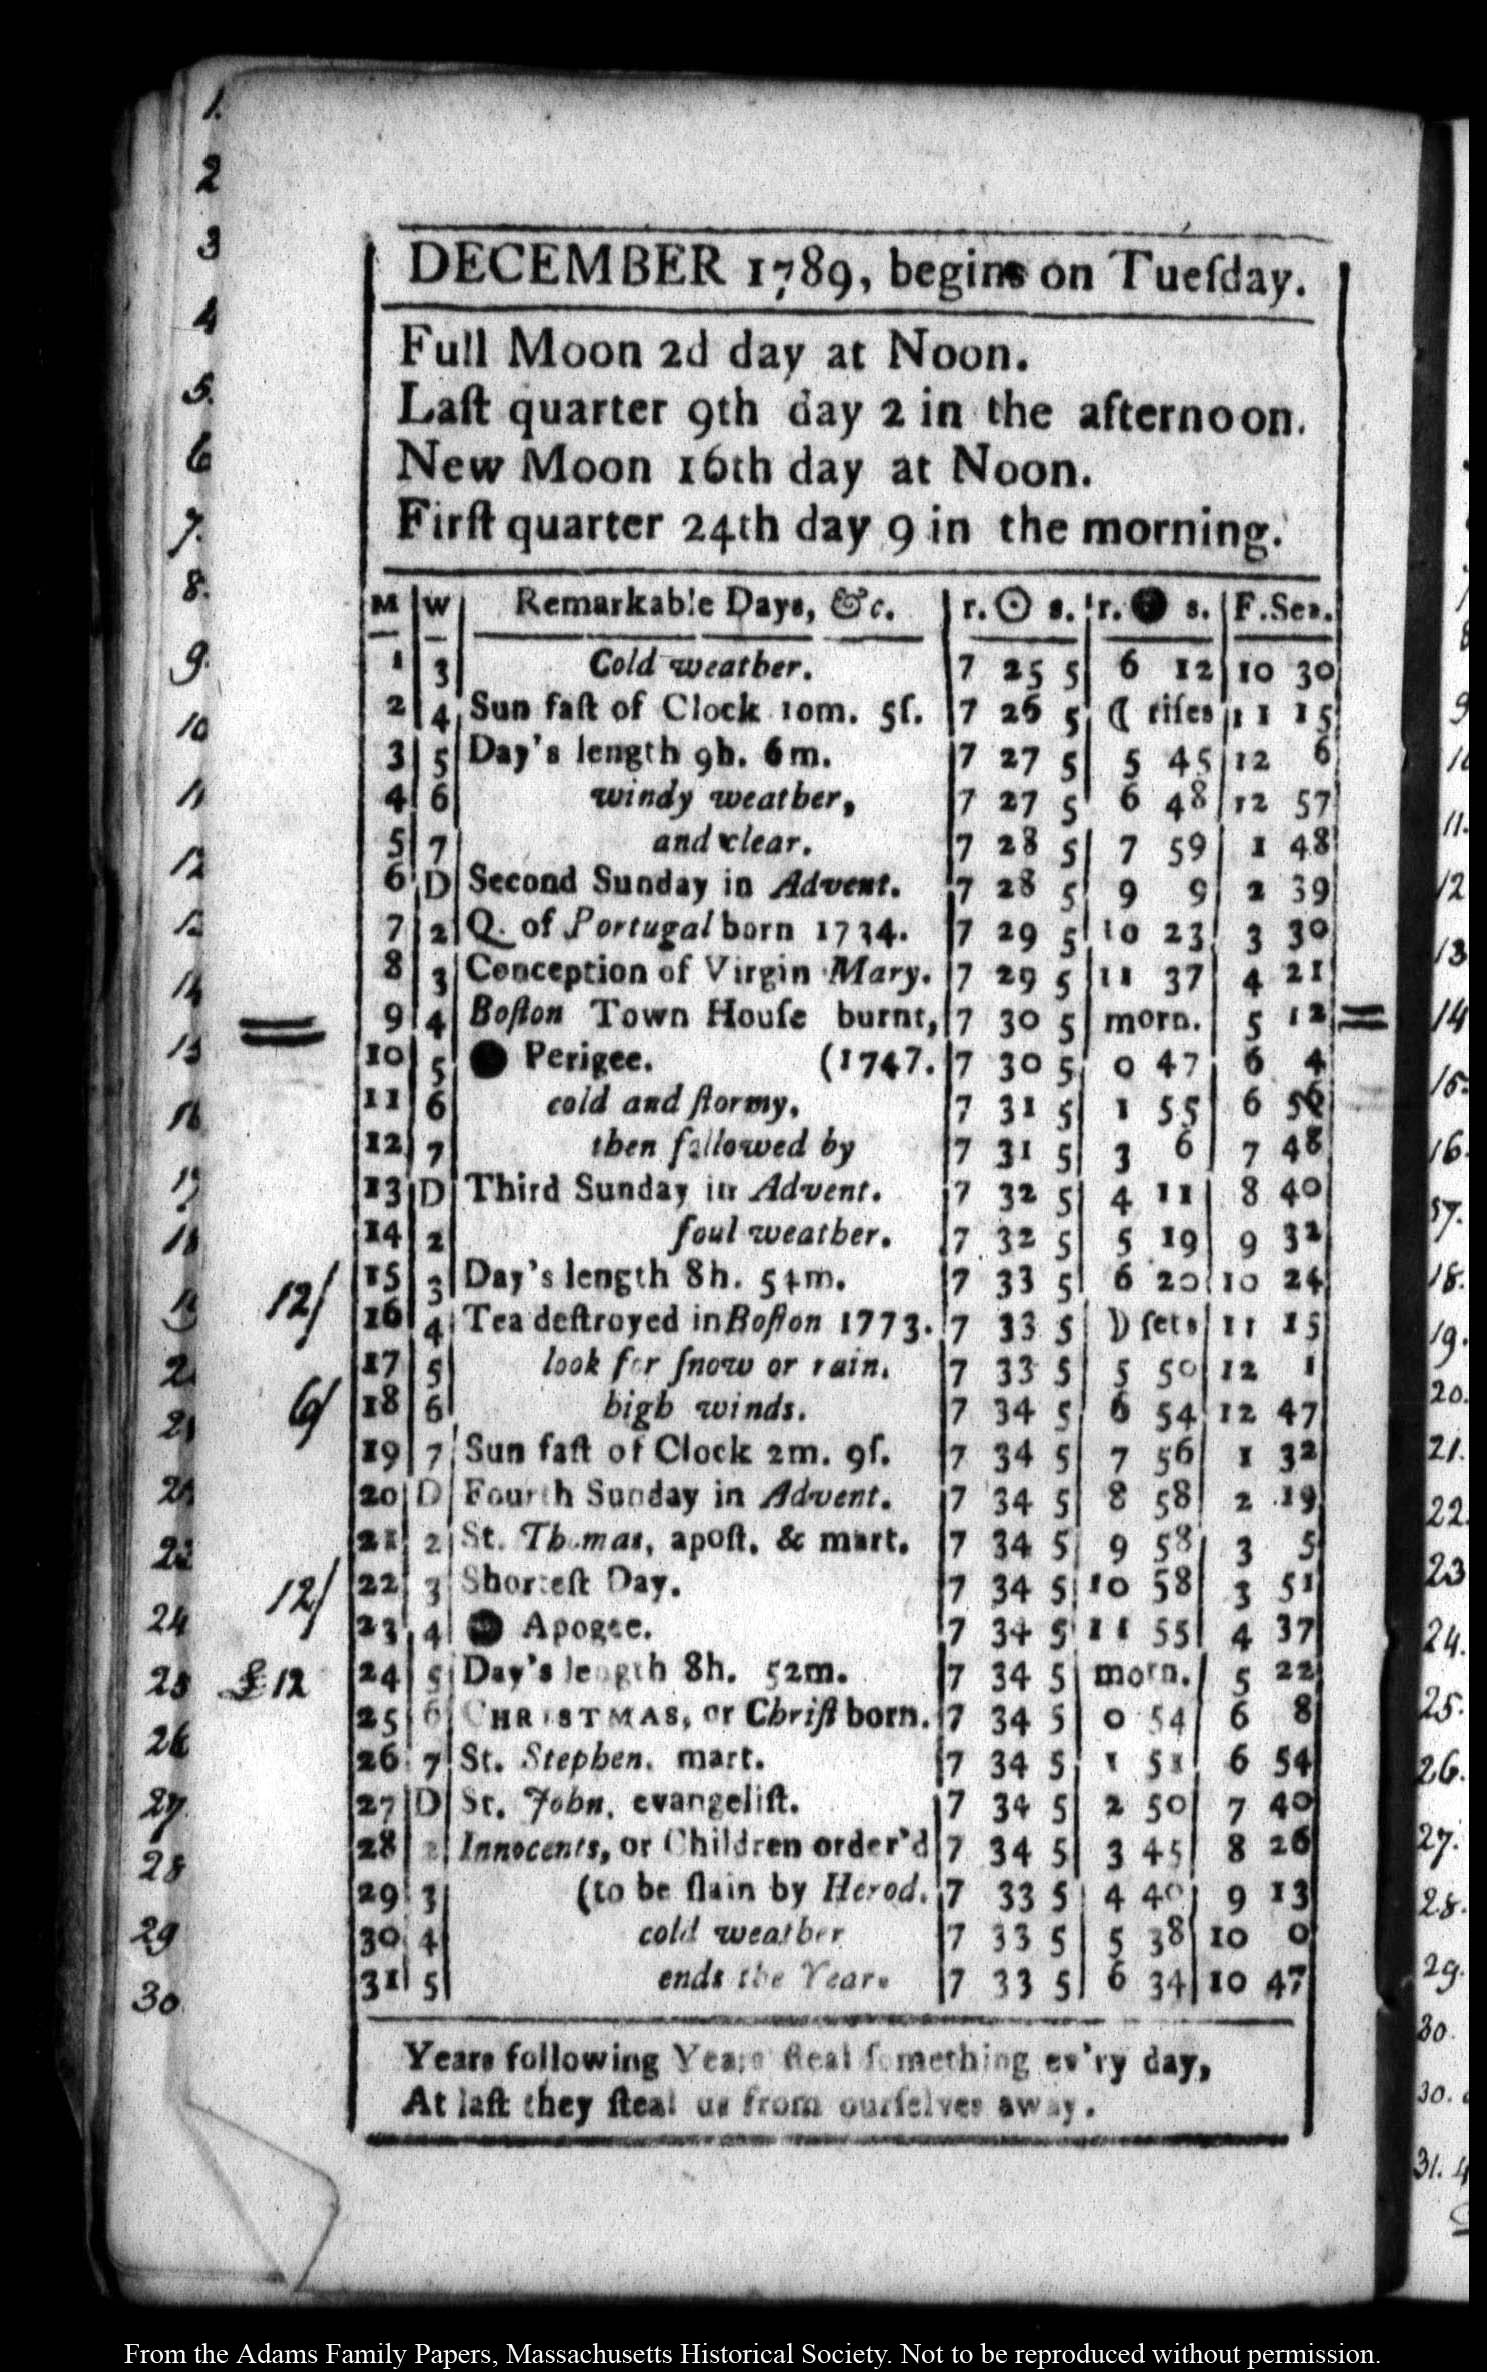 DECEMBER 1789, begins on Tueſday.
Full Moon 2d day at Noon.
Laſt quarter 9th day 2 in the afternoon.
New Moon 16th day at Noon.
Firſt quarter 24th day 9 in the morning.
M W Remarkable Days, &c. r. ☉ s. r. ● s. F.Sea.
1 3 Cold weather. 7 25 5 6 12 10 30
2 4 Sun faſt of Clock 10m. 5ſ. 7 26 5 ☾ riſes 11 15
3 5 Day's length 9h. 6m. 7 27 5 5 45 12 6
4 6 windy weather, 7 27 5 6 48 12 57
5 7 and clear. 7 28 5 7 59 1 48
6 D Second Sunday in Advent. 7 28 5 9 9 2 39
7 2 Q. of Portugal born 1734. 7 29 5 10 23 3 30
8 3 Conception of Virgin Mary. 7 29 5 11 37 4 21
9 4 Boſton Town Houſe burnt, 7 30 5 morn. 5 12
10 5 ● Perigee. (1747. 7 30 5 0 47 6 4
11 6 cold and ſtormy, 7 31 5 1 55 6 56
12 7 then followed by 7 31 5 3 6 7 48
13 D Third Sunday in Advent. 7 32 5 4 11 8 40
14 2 foul weather. 7 32 5 5 19 9 32
12/ 15 3 Day's length 8h. 54m. 7 33 5 6 20 10 24
16 4 Tea deſtroyed in Boſton 1773. 7 33 5 ☽ ſets 11 15
17 5 look for ſnow or rain. 7 33 5 5 50 12 1
6/ 18 6 high winds. 7 34 5 6 54 12 47
19 7 Sun faſt of Clock 2m. 9ſ. 7 34 5 7 56 1 32
20 D Fourth Sunday in Advent. 7 34 5 8 58 2 19
21 2 St. Thomas, apoſt. & mart. 7 34 5 9 58 3 5
12/ 22 3 Shorteſt Day. 7 34 5 10 58 3 51
23 4 ● Apogee. 7 34 5 11 55 4 37
£12 24 5 Day's length 8h. 52m. 7 34 5 morn. 5 22
25 6 CHRISTMAS, or Chriſt born. 7 34 5 0 54 6 8
26 7 St. Stephen. mart. 7 34 5 1 51 6 54
27 D St. John, evangeliſt. 7 34 5 2 50 7 40
28 2 Innocents, or Children order'd 7 34 5 3 45 8 26
29 3 (to be ſlain by Herod. 7 33 5 4 40 9 13
30 4 cold weather 7 33 5 5 38 10 0
31 5 ends the Year. 7 33 5 6 34 10 47
Years following Years ſteal ſomething ev'ry day,
At laſt they ſteal us from ourſelves away.
1.
2
3
4
5.
6
7.
8.
9.
10
11
12
13
14
15
16
17
18
19
20
21
22
23
24
25
26
27
28
29
30
9
11.
12
13
14
15.
16.
17.
18.
19.
20.
21.
22.
23
24.
25.
26.
27.
28.
29.
30.
30.
31.
From the Adams Family Papers, Massachusetts Historical Society. Not to be reproduced without permission.